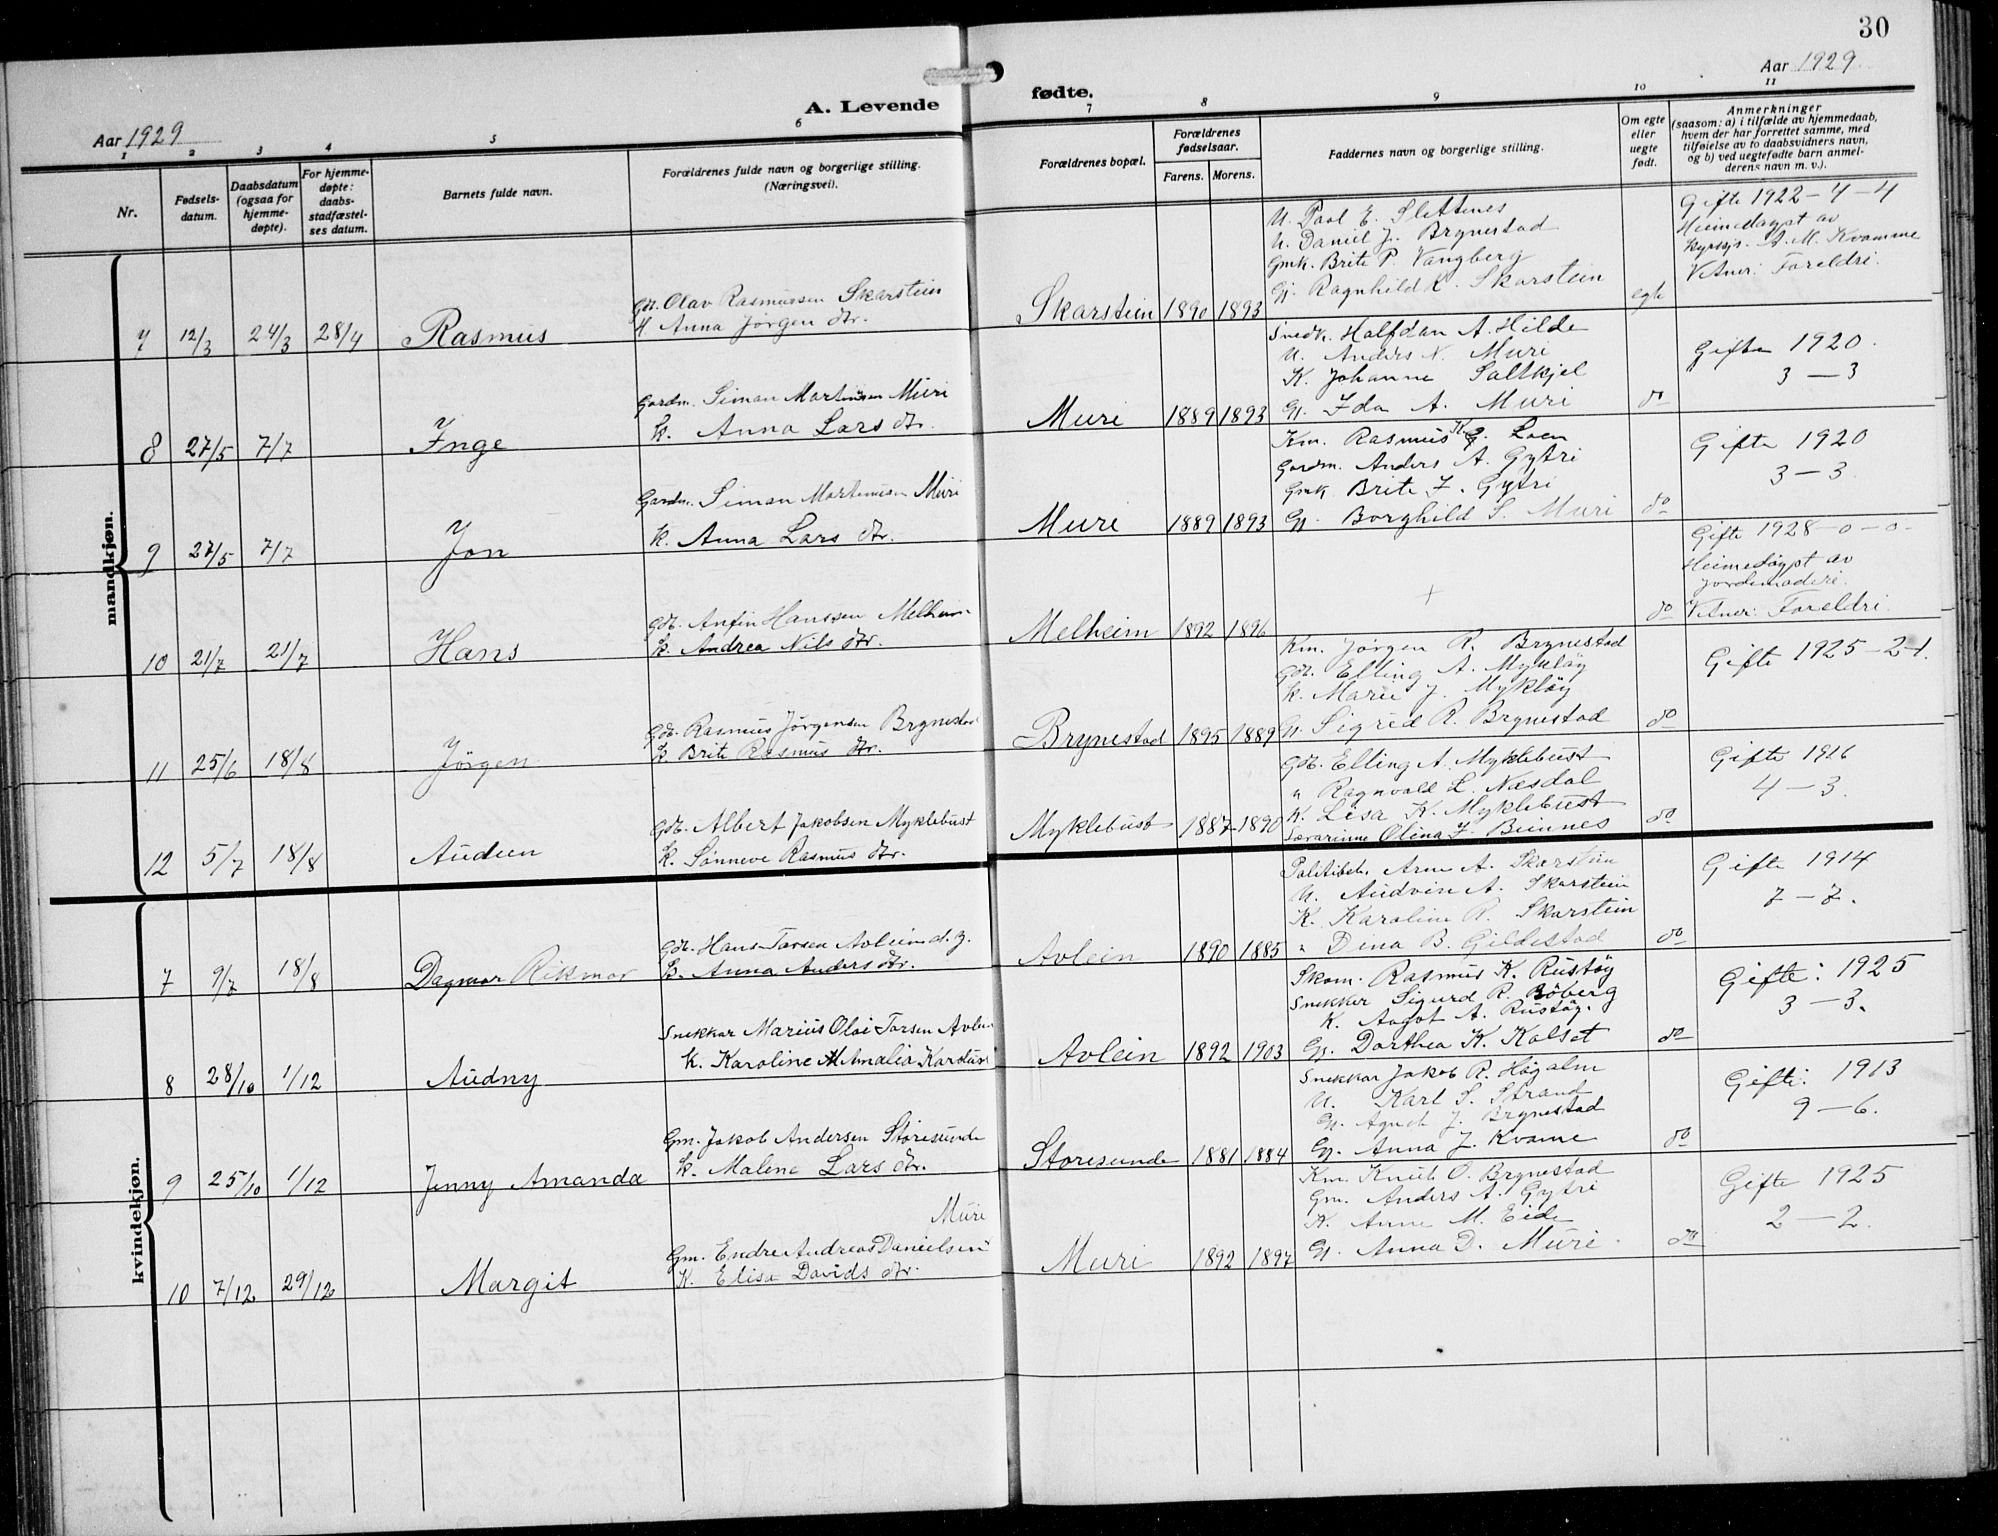 30
Aar 1929
A. Levende fødte.
Aar 1929
1 2 3 4 5 6 7 8 9 10 11
Nr.
Fødsels-
datum.
Daabsdatum
(ogsaa for
hjemme-
døpte).
For hjemme-
døpte:
daabs-
stadfæstel-
ses datum.
Barnets fulde navn.
Forældrenes fulde navn og borgerlige stilling.
(Næringsvei).
Forældrenes bopæl.
Forældrenes
fødselsaar.
Farens. Morens.
Faddernes navn og borgerlige stilling.
Om egte
eller
uegte
født.
Anmerkninger
(saasom: a) i tilfælde av hjemmedaab,
hvem der har forrettet samme, med
tilføielse av to daabsvidners navn,
og b) ved uegtefødte barn anmel-
derens navn m. v.).
mandkjøn.
7 12/3 24/3 28/4 Rasmus
Gbr. Olav Rasmussen Skarstein
K Anna Jørgen dtr.
Skarstein 1890 1893
U. Paal E. Slettnes
U. Daniel J. Brynestad
Gmk. Brite P. Vangberg
Gj. Ragnhild R. Skarstein
egte
Gifte 1922-4-4
Heimedøypt av
kyrkjs. A. M. Kvamme
Vitner: Foreldri.
8 27/5 7/7 Inge
Gardm. Simon Martinsen Muri
k. Anna Lars dtr.
Muri 1889 1893
Snedk. Halfdan A. Hilde
U. Anders N. Muri
K. Johanne Saltkjel
Gj. Ida A. Muri
do
Gifte 1920.
3-3
9 27/5 7/7 Jon
Gardm. Simon Martinusen Muri
k. Anna Lars dtr.
Muri 1889 1893
Km. Rasmus K. G. Loen
Gardm. Anders A. Gytri
Gmk. Brite I. Gytri
Gj. Borghild S. Muri
do
Gifte 1920
3-3.
10 21/7 21/7 Hans
Gbr. Anfin Hanssen Melheim
k. Andrea Nils dtr.
Melheim 1892 1896
+
do
Gifte 1928-0-0-
Heimedøypt av
jordmoderi.
Vitner: Foreldri.
11 25/6 18/8 Jörgen
Gbr. Rasmus Jørgensen Brynestad
k. Brite Rasmus dtr.
Brynestad 1895 1889
Km. Jørgen R. Brynestad
Gbr. Elling A. Mykløy
k. Marie J. Mykløy
Gj. Sigrid R. Brynestad
do
Gifte 1925-2-1.
12 5/7 18/8 Audun
Gbr. Albert Jakobsen Myklebust
k. Sønneve Rasmus dtr.
Myklebust 1887 1890
Gbr. Elling A. Myklebust
" Ragnvald L. Næsdal
k. Lisa K. Myklebust
Lærarinne Olina J. Binnes
do
Gifte 1916
4-3.
kvindekjøn.
7 9/7 18/8 Dagmar Rikmor
Gbr. Hans Torsen Avlein d. y.
k. Anna Anders dtr.
Avlein 1890 1885
Politibetj. Arne A. Skarstein
U. Audvin A. Skarstein
K. Karoline R. Skarstein
" Dina B. Gildestad
do
Gifte 1914
7-7.
8 28/10 1/12 Audny
Snekkar Marius Olai Torsen Avlein
k. Karoline Amalia Karstens
Avlein 1892 1903
Skom. Rasmus K. Rustøy
Snekker Sigurd R. Böberg
K. Aagot A. Rustøy.
Gj. Dorthea K. Kolset
do
Gifte: 1925
3-3.
9 25/10 1/12 Jenny Amanda
Gm. Jakob Andersen Storesunde
k. Malene Lars dtr.
Storesunde 1881 1884
Snekkar Jakob R. Høgalm
U. Karl S. Strand
Gj. Agnet J. Brynestad
Gj. Anna J. Kvame
do
Gifte: 1913
9-6.
10 7/12 29/12 Margit
Muri
Gm. Endre Andreas Danielsen
K. Elisa Davids dtr.
Muri 1892 1897
Km. Knut O. Brynestad
Gm. Anders A. Gytri
K. Anne M. Eide
Gj. Anna D. Muri.
do
Gifte 1925
2-2.